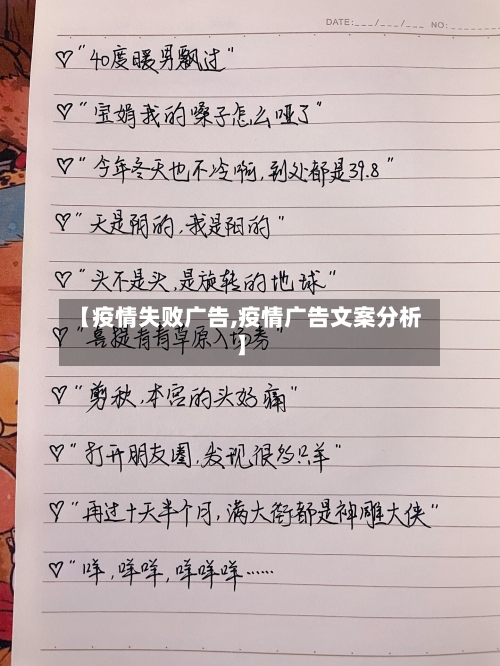 DATE:___/___/___ NO:________
♡"40度暖男飘过"
♡"宝娟我的嗓子怎么哑了"
♡"今年冬天也不冷啊,到处都是39.8"
♡"天是阴的,我是阳的"
♡"头不是头,是旋转的地球"
【疫情失败广告,疫情广告文案分析
】
♡"喜提青青草原入场券"
♡"剪秋,本宫的头好痛"
♡"打开朋友圈,发现很多只羊"
♡"再过十天半个月,满大街都是神雕大侠"
♡"咩,咩咩,咩咩咩……